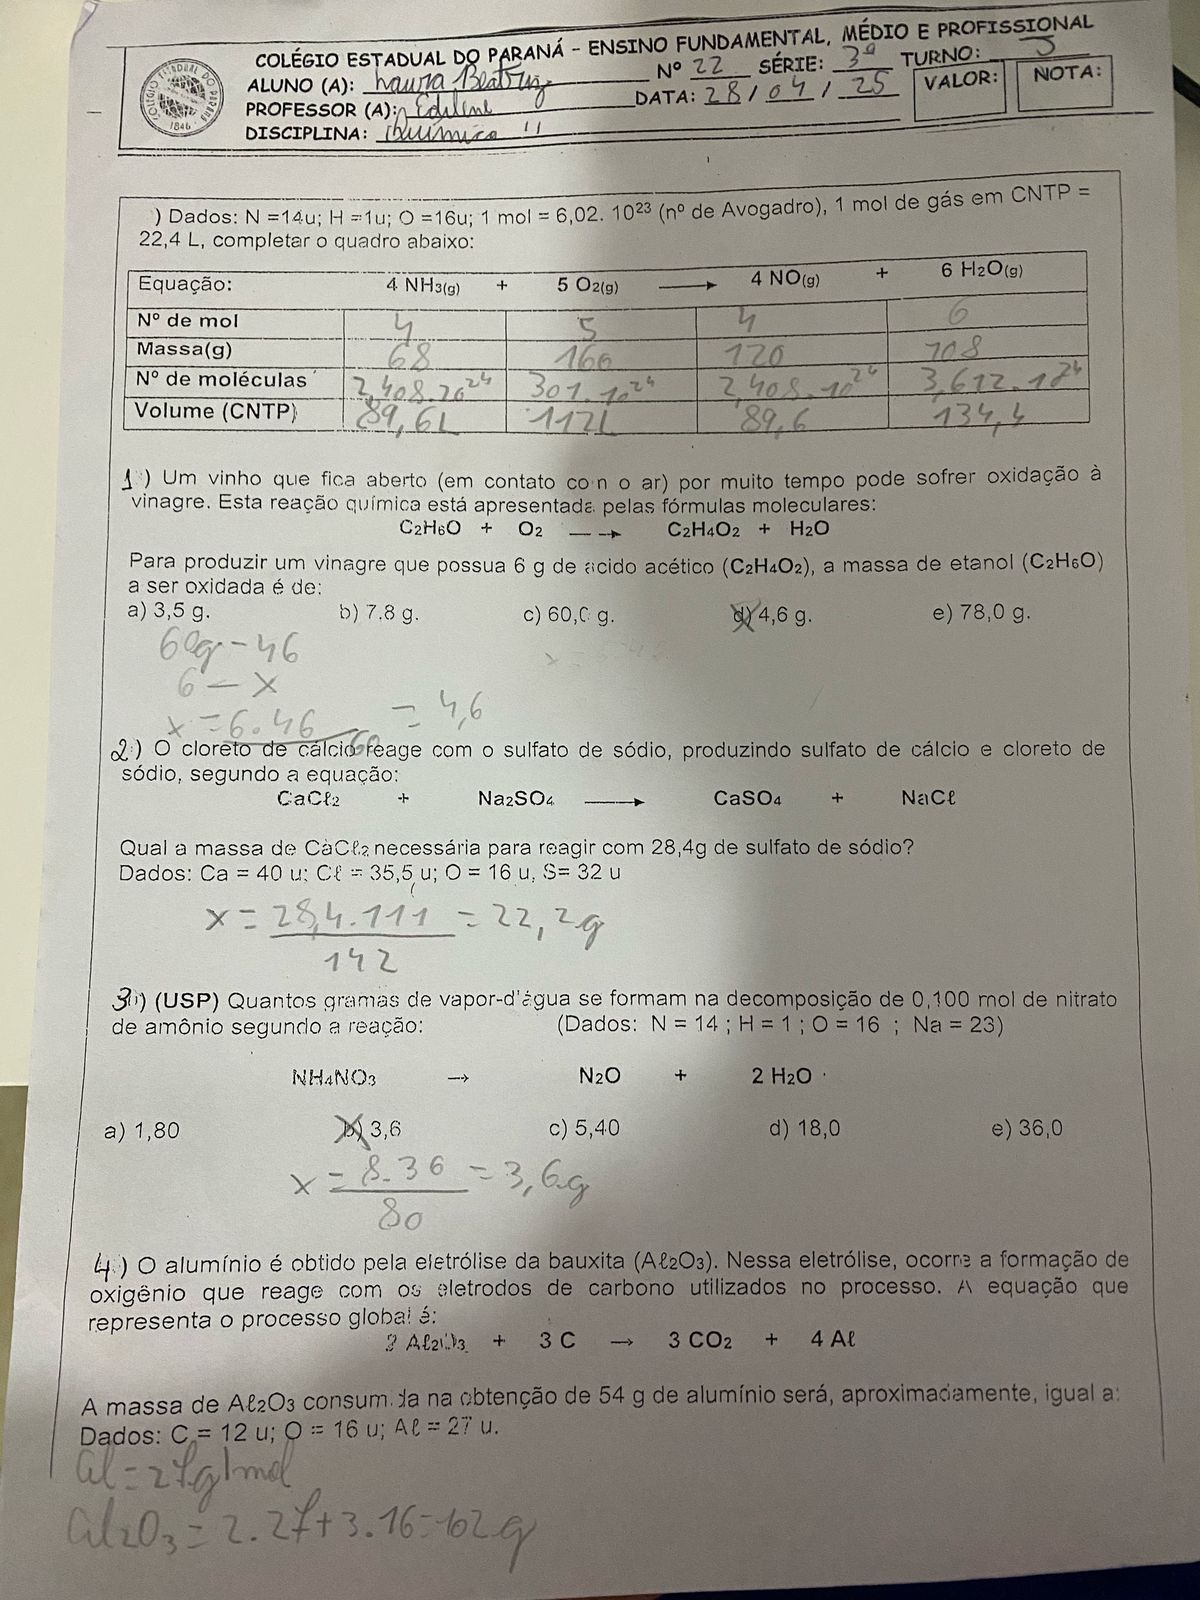 COLÉGIO ESTADUAL DO PARANÁ - ENSINO FUNDAMENTAL, MÉDIO E PROFISSIONAL
ALUNO (A): Laura Beatriz Nº 22 SÉRIE: 3ª TURNO: J
PROFESSOR (A): Edilene DATA: 28 / 04 / 25 VALOR: NOTA:
DISCIPLINA: Química II
COLÉGIO ESTADUAL DO PARANÁ
1846
) Dados: N =14u; H =1u; O =16u; 1 mol = 6,02. 10²³ (nº de Avogadro), 1 mol de gás em CNTP =
22,4 L, completar o quadro abaixo:
Equação: 4 NH₃(g) + 5 O₂(g) ⟶ 4 NO(g) + 6 H₂O(g)
Nº de mol 4 5 4 6
Massa(g) 68 160 120 108
Nº de moléculas 2,408.10²⁴ 301.10²⁴ 2,408.10²⁴ 3,612.10²⁴
Volume (CNTP) 89,6L 112L 89,6 134,4
1) Um vinho que fica aberto (em contato com o ar) por muito tempo pode sofrer oxidação à
vinagre. Esta reação química está apresentada pelas fórmulas moleculares:
C₂H₆O + O₂ ⟶ C₂H₄O₂ + H₂O
Para produzir um vinagre que possua 6 g de ácido acético (C₂H₄O₂), a massa de etanol (C₂H₆O)
a ser oxidada é de:
a) 3,5 g. b) 7,8 g. c) 60,0 g. d) 4,6 g. e) 78,0 g.
60g - 46
6 - x
x = 6.46 = 4,6
60
2) O cloreto de cálcio reage com o sulfato de sódio, produzindo sulfato de cálcio e cloreto de
sódio, segundo a equação:
CaCℓ₂ + Na₂SO₄ ⟶ CaSO₄ + NaCℓ
Qual a massa de CaCℓ₂ necessária para reagir com 28,4g de sulfato de sódio?
Dados: Ca = 40 u; Cℓ = 35,5 u; O = 16 u, S= 32 u
x = 28,4.111 = 22,2g
142
3) (USP) Quantos gramas de vapor-d'água se formam na decomposição de 0,100 mol de nitrato
de amônio segundo a reação: (Dados: N = 14 ; H = 1 ; O = 16 ; Na = 23)
NH₄NO₃ → N₂O + 2 H₂O
a) 1,80 b) 3,6 c) 5,40 d) 18,0 e) 36,0
x = 8.36 = 3,6g
80
4) O alumínio é obtido pela eletrólise da bauxita (Aℓ₂O₃). Nessa eletrólise, ocorre a formação de
oxigênio que reage com os eletrodos de carbono utilizados no processo. A equação que
representa o processo global é:
2 Aℓ₂O₃ + 3 C → 3 CO₂ + 4 Aℓ
A massa de Aℓ₂O₃ consumida na obtenção de 54 g de alumínio será, aproximadamente, igual a:
Dados: C = 12 u; O = 16 u; Aℓ = 27 u.
Al = 27g/mol
Al₂O₃ = 2.27+3.16=102g